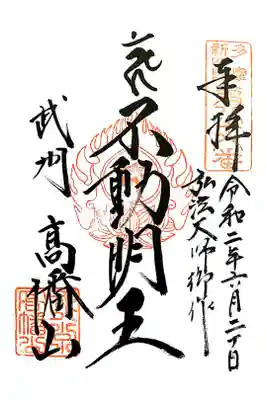 奉拝
令和二年六月二十日
弘法大師御作
不動明王
武州 高幡山